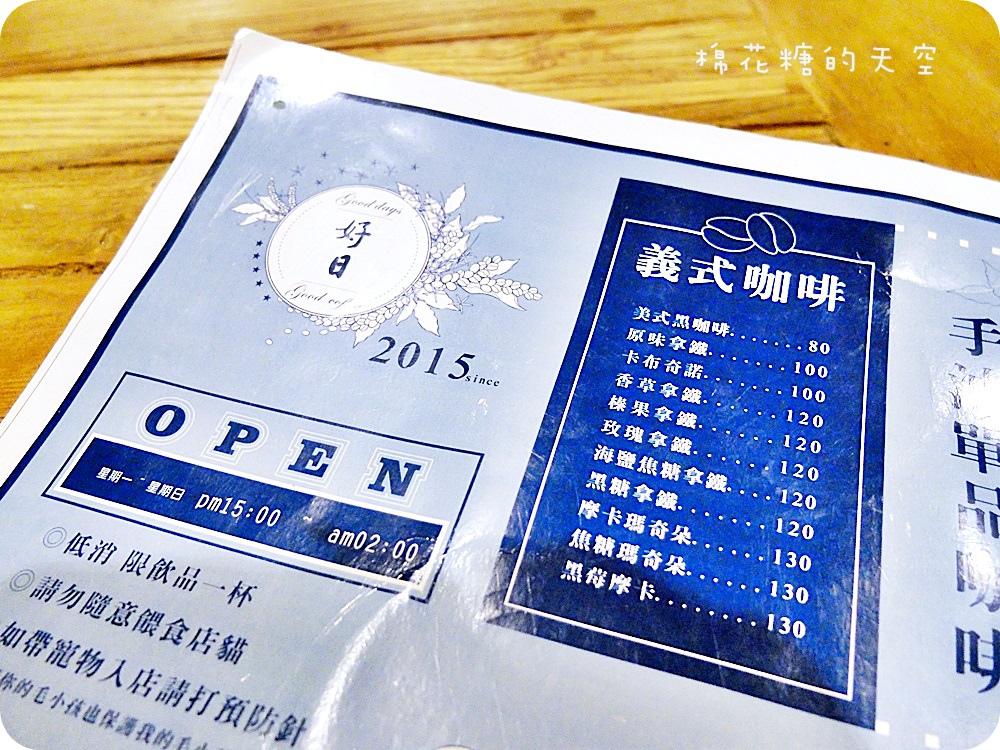 棉花糖的天空
Good days
好日
Good cof
2015 since
OPEN
星期一 - 星期日 pm15:00 ~ am02:00
◎低消 限飲品一杯
◎請勿隨意餵食店貓
如帶寵物入店請打預防針
你的毛小孩也保護我的毛小
義式咖啡
美式黑咖啡........80
原味拿鐵........100
卡布奇諾........100
香草拿鐵........120
榛果拿鐵........120
玫瑰拿鐵........120
海鹽焦糖拿鐵.....120
黑糖拿鐵........120
摩卡瑪奇朵.......130
焦糖瑪奇朵.......130
黑莓摩卡........130
手
單品咖啡